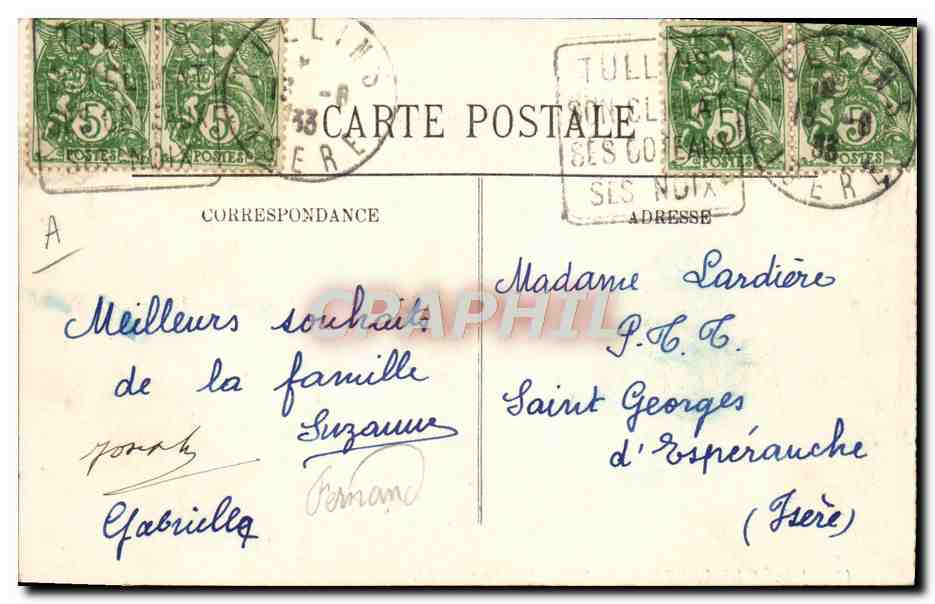 TULLINS
SON CLIMAT
SES COTEAUX
SES NOIX
TULLINS
1 -8
33
ISERE
5 5
POSTES POSTES
CARTE POSTALE
TULLINS
SON CLIMAT
SES COTEAUX
SES NOIX
TULLINS
-8
33
ISERE
5 5
POSTES POSTES
A
CORRESPONDANCE
Meilleurs souhaits
de la famille
Suzanne
Joseph
Fernand
Gabrielle
ADRESSE
Madame Lardière
P.T.T.
Saint Georges
d'Espéranche
(Isère)
CPAPHIL